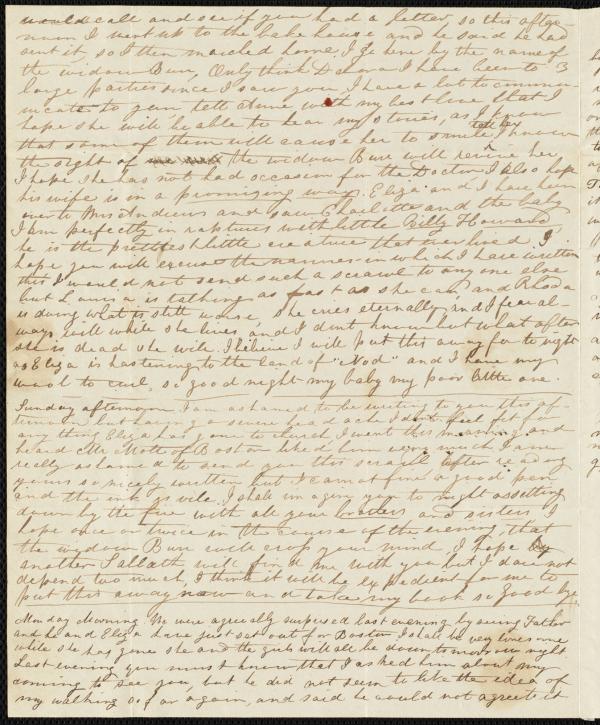 would call and see if you had a letter, so this after-
noon I went up to the bake house and he said he had
sent it, so I then marched home, I go here by the name of
the widow Burr, Only think D I have been to 3
large parties since I saw you, I have a lot to commu-
nicate to you tell Anne with my best love that I
hope she will be able to hear my stories, as I know
that some of them will cause her to smile, tell her I know
the sight of the widow Burr will revive her
I hope she has not had occasion for the Doctor I also hope
his wife is in a promising way. Eliza and I have been
over to Mrs Andrews and saw Charlotte and the baby
I am perfectly in raptures with little Billy Howard
he is the prettiest little creature that ever lived. I
hope you will excuse the manner in which I have written
this I would not send such a scrawl to any one else
but Louisa is talking as fast as she can, and Rhoda
is doing what is still worse she cries eternally, and I fear al-
ways will while she lives, and I dont know but what after
she is dead she will. I believe I will put this away for to night
as Eliza is hastening to the land of "Nod" and I have my
wool to curl, so good night my baby my poor little one.
Sunday afternoon I am ashamed to be writing to you this af-
ternoon but having a severe head ache I dont feel fit for
any thing Eliza has gone to church, I went this morning and
heard Mr Motte of Boston liked him very much, I am
really ashamed to send you this scrawll after reading
yours so nicely written but I cannot find a good pen
and the ink is vile. I shall imagine you to night a setting
down by the fire with all your brothers and sisters I
hope once or twice in the course of the evening, that
the widow Burr will crop your mind, I hope by
another Sabbath will find me with you but I dare not
depend too much, I think it will be expedient for me to
put this away now and take my book so good bye
Monday Morning. We were agreeably surprised last evening by seeing Father
and he and Eliza have just set out for Boston I shall be very lonesome
while she has gone she and the girls will all be down tomorrow night.
Last evening you must know that I asked him about my
coming to see you, but he did not seem to like the idea of
my walking so far again, and said he could not agree to it